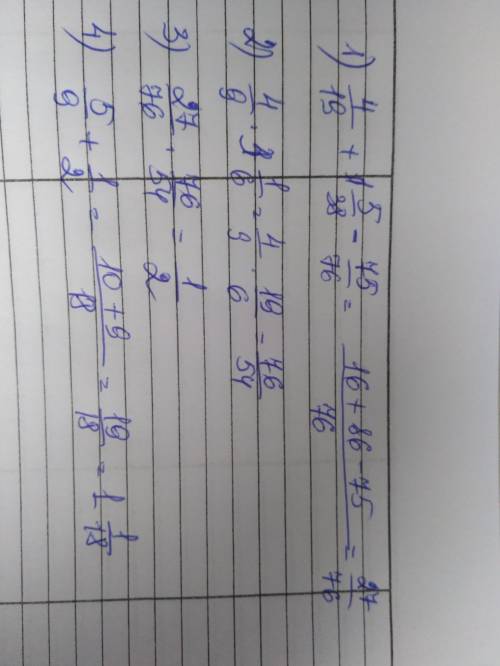 1) 4/19 + 1 5/38 - 75/76 = (16 + 86 - 75)/76 = 27/76
2) 4/9 · 3 1/6 = 4/9 · 19/6 = 76/54
3) 27/76 · 76/54 = 1/2
4) 5/9 + 1/2 = (10 + 9)/18 = 19/18 = 1 1/18